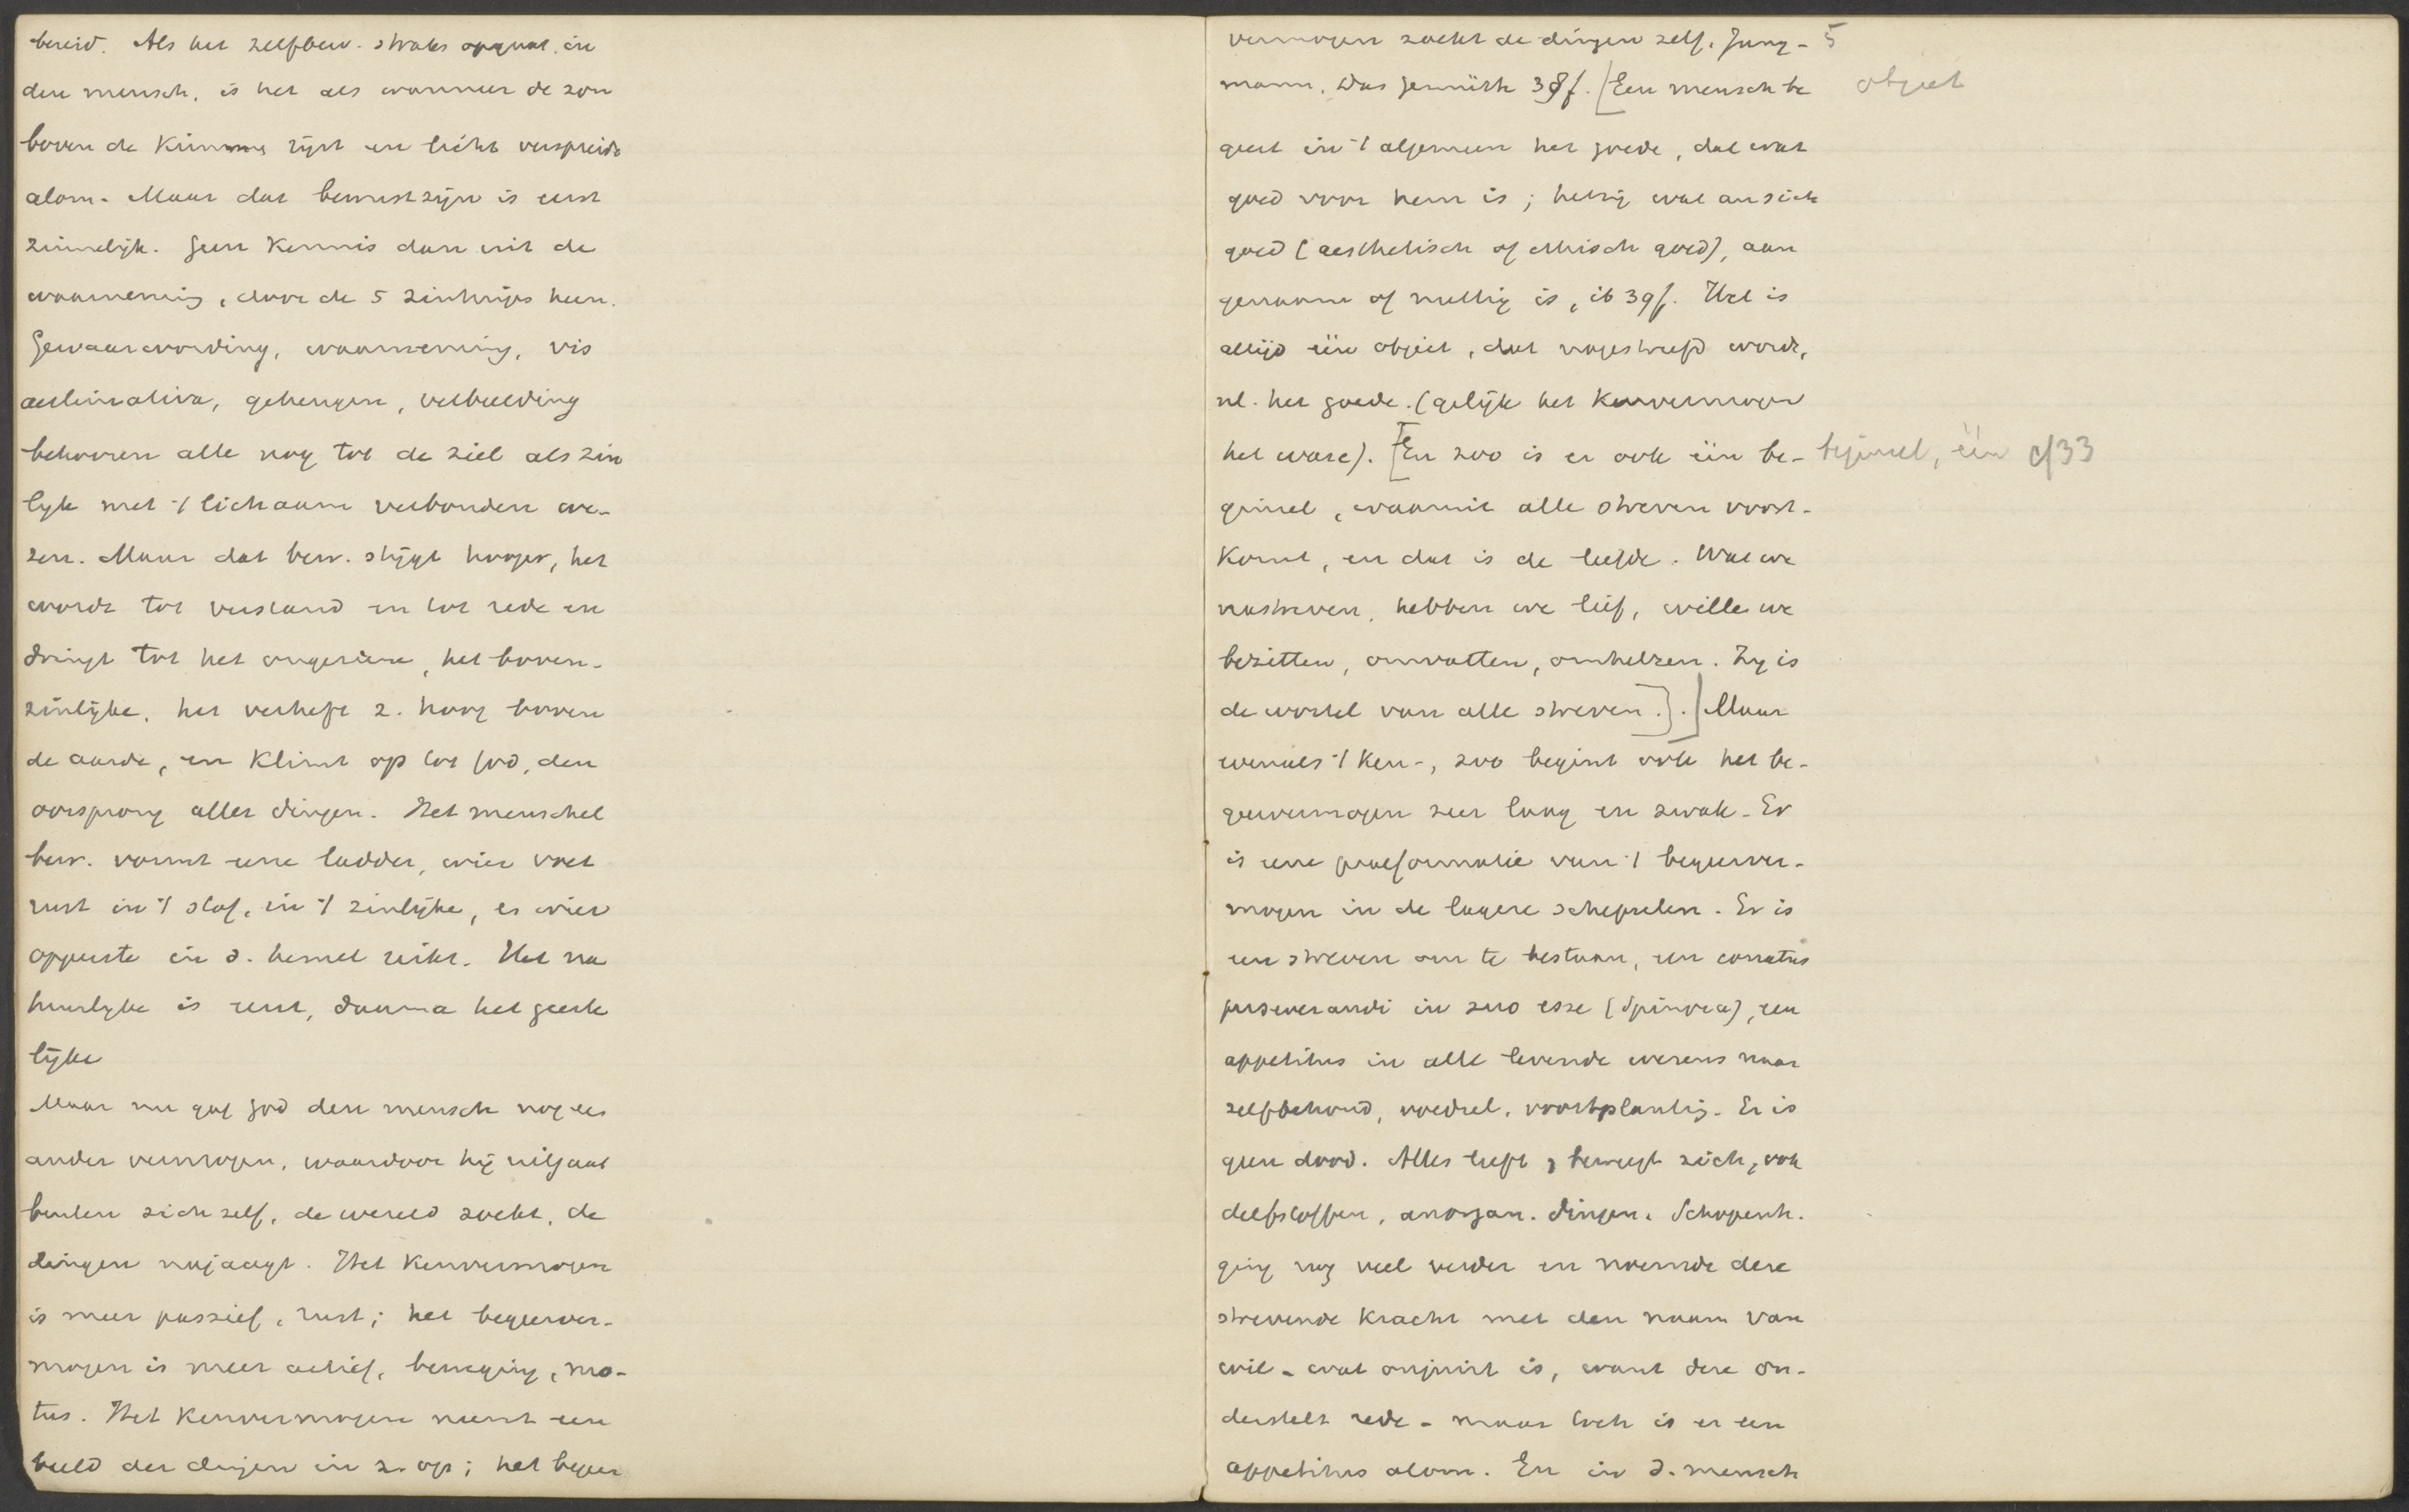 bereid. Als het zelfbew. straks opgaat in
den mensch, is het als wanneer de zon
boven de kimme rijst en licht verspreidt
alom. Maar dat bewustzijn is eerst
zinnelijk. Geen kennis dan uit de
waarneming, door de 5 zintuigs heen.
Gewaarwording, waarneming, vis
aestimativa, geheugen, verbeelding
behooren alle nog tot de ziel als zin
lijk met 't lichaam verbonden we-
zen. Maar dat bew. stijgt hooger, het
wordt tot verstand en tot rede en
dringt tot het ongeziene, het boven-
zinlijke, het verheft z. hoog boven
de aarde, en klimt op tot God, den
oorsprong aller dingen. Het menschel
bew. vormt eene ladder, wier voet
rust in 't stof, in 't zinlijke, es wier
opperste in d. hemel reikt. Het na
tuurlijke is eerst, daarna het geeste
lijke
Maar nu gaf God den mensch nog een
ander vermogen, waardoor hij uitgaat
buiten zich zelf, de wereld zoekt, de
dingen najaagt. Het kenvermogen
is meer passief, rust; het begeerver-
mogen is meer actief, beweging, mo-
tus. Het kenvermogen neemt een
beeld der dingen in z. op; het begeer
vermogen zoekt de dingen zelf. Jung- 5
mann, Das Gemüth 38f. [Een mensch be object
geert in 't algemeen het goede, dat wat
goed voor hem is; hetzij wat an sich
goed (aesthetisch of ethisch goed), aan
genaam of nuttig is, ib 39f. Het is
altijd één object, dat nagestreefd wordt,
nl. het goede. (gelijk het kenvermogen
het ware). [En zoo is er ook één be- beginsel, één cf 33
ginsel, waaruit alle streven voort-
komt, en dat is de liefde. Wat we
nastreven, hebben we lief, wille we
bezitten, omvatten, omhelzen. Zij is
de wortel van alle streven.].] Maar
evenals 't ken-, zoo begint ook het be-
geervermogen zeer laag en zwak. Er
is eene praeformatie van 't begeerver-
mogen in de lagere schepselen. Er is
een streven om te bestaan, een conatus
perseverandi in suo esse (Spinoza), een
appetitus in alle levende wezens naar
zelfbehoud, voedsel, voortplantig. Er is
geen dood. Alles leeft & beweegt zich, ook
delfstoffen, anorgan. dingen. Schopenh.
ging nog veel verder en noemde deze
strevende kracht met den naam van
wil - wat onjuist is, want deze on-
derstelt rede - maar toch is er een
appetitus alom. En in d. mensch